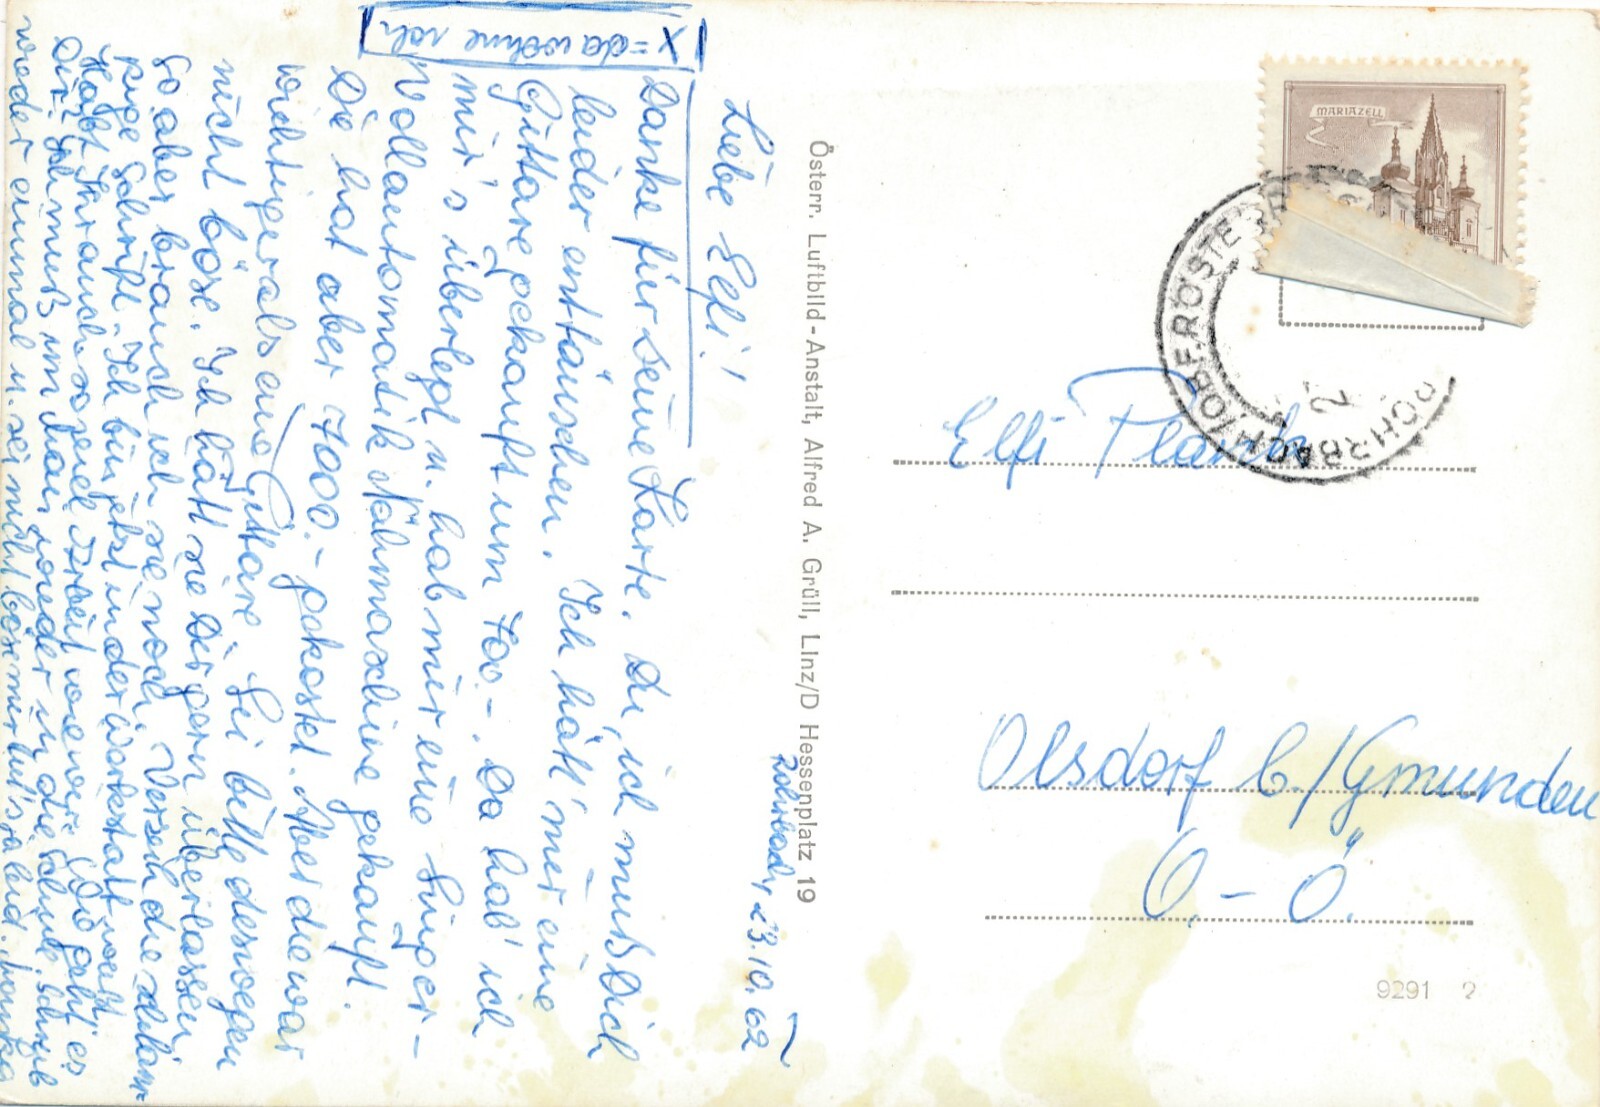 X = da wohne ich.
Rohrbach, 23.10.62
Liebe Elfi!
Danke für Deine Karte. Du, ich muß Dich
leider enttäuschen. Ich hätt' mir eine
Gittare gekauft um 700.-. Da hab' ich
mir's überlegt u. hab mir eine Singer-
Vollautomatik Nähmaschine gekauft.
Die hat aber 7000.- gekostet. Aber die war
wichtiger als eine Gittare. Sei bitte deswegen
nicht böse. Ich hätt sie Dir gern überlassen
so aber brauch ich sie noch. Verzeih die schlam-
pige Schrift. Ich bin jetzt in der Werkstatt weil
viel Arbeit Wie geht es
Dir. Ich muß im wieder in die Schule. Schreib
wieder einmal u. sei nicht bös mir tut's so leid.
Österr. Luftbild-Anstalt, Alfred A. Grüll, Linz/D Hessenplatz 19
MARIAZELL
ROHRBACH/OBERÖSTERR
Elfi
Olsdorf b./Gmunden
O.-Ö.
9291